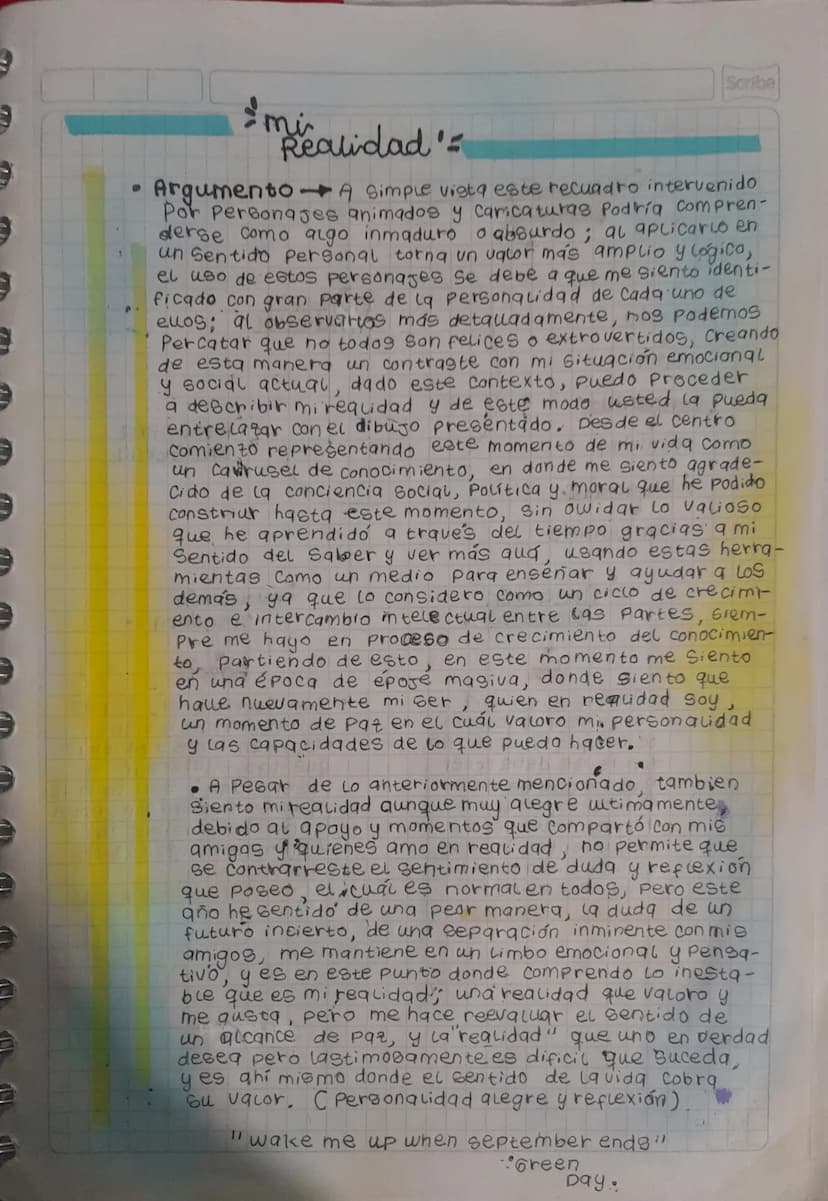 Scribe
mi
Realidad
• Argumento → A simple vista este recuadro intervenido
Por personajes animados y caricaturas podría compren-
derse como algo inmaduro o absurdo; al aplicarlo en
un sentido personal torna un valor más amplio y lógico,
el uso de estos personajes se debe a que me siento identi-
ficado con gran parte de la personalidad de cada uno de
ellos; al observarlos más detalladamente, nos podemos
percatar que no todos son felices o extrovertidos, creando
de esta manera un contraste con mi situación emocional
y social actual, dado este contexto, puedo proceder
a describir mi realidad y de este modo usted la pueda
entrelazar con el dibujo presentado. Desde el centro
comienzo representando este momento de mi vida como
un carrusel de conocimiento, en donde me siento agrade-
cido de la conciencia social, política y moral que he podido
construir hasta este momento, sin olvidar lo valioso
que he aprendido a través del tiempo gracias a mi
sentido del saber y ver más allá, usando estas herra-
mientas como un medio para enseñar y ayudar a los
demás, ya que lo considero como un ciclo de crecimi-
ento e intercambio intelectual entre las partes, siem-
pre me hayo en proceso de crecimiento del conocimien-
to, partiendo de esto, en este momento me siento
en una época de épose masiva, donde siento que
halle nuevamente mi ser, quien en realidad soy,
un momento de paz en el cuál valoro mi personalidad
y las capacidades de lo que puedo hacer.
• A pesar de lo anteriormente mencionado, tambien
siento mi realidad aunque muy alegre ultimamente,
debido al apoyo y momentos que compartó con mis
amigas y quienes amo en realidad, no permite que
se contrarreste el sentimiento de duda y reflexión
que poseo, el cuál es normal en todos, pero este
año he sentido de una peor manera, la duda de un
futuro incierto, de una separación inminente con mis
amigos, me mantiene en un limbo emocional y pensa-
tivo, y es en este punto donde comprendo lo inesta-
ble que es mi realidad; una realidad que valoro y
me gusta, pero me hace reevaluar el sentido de
un alcance de paz, y la "realidad" que uno en verdad
desea pero lastimosamente es dificil que suceda,
y es ahí mismo donde el sentido de la vida cobra
su valor. (Personalidad alegre y reflexión)
"wake me up when september ends"
Green
Day.